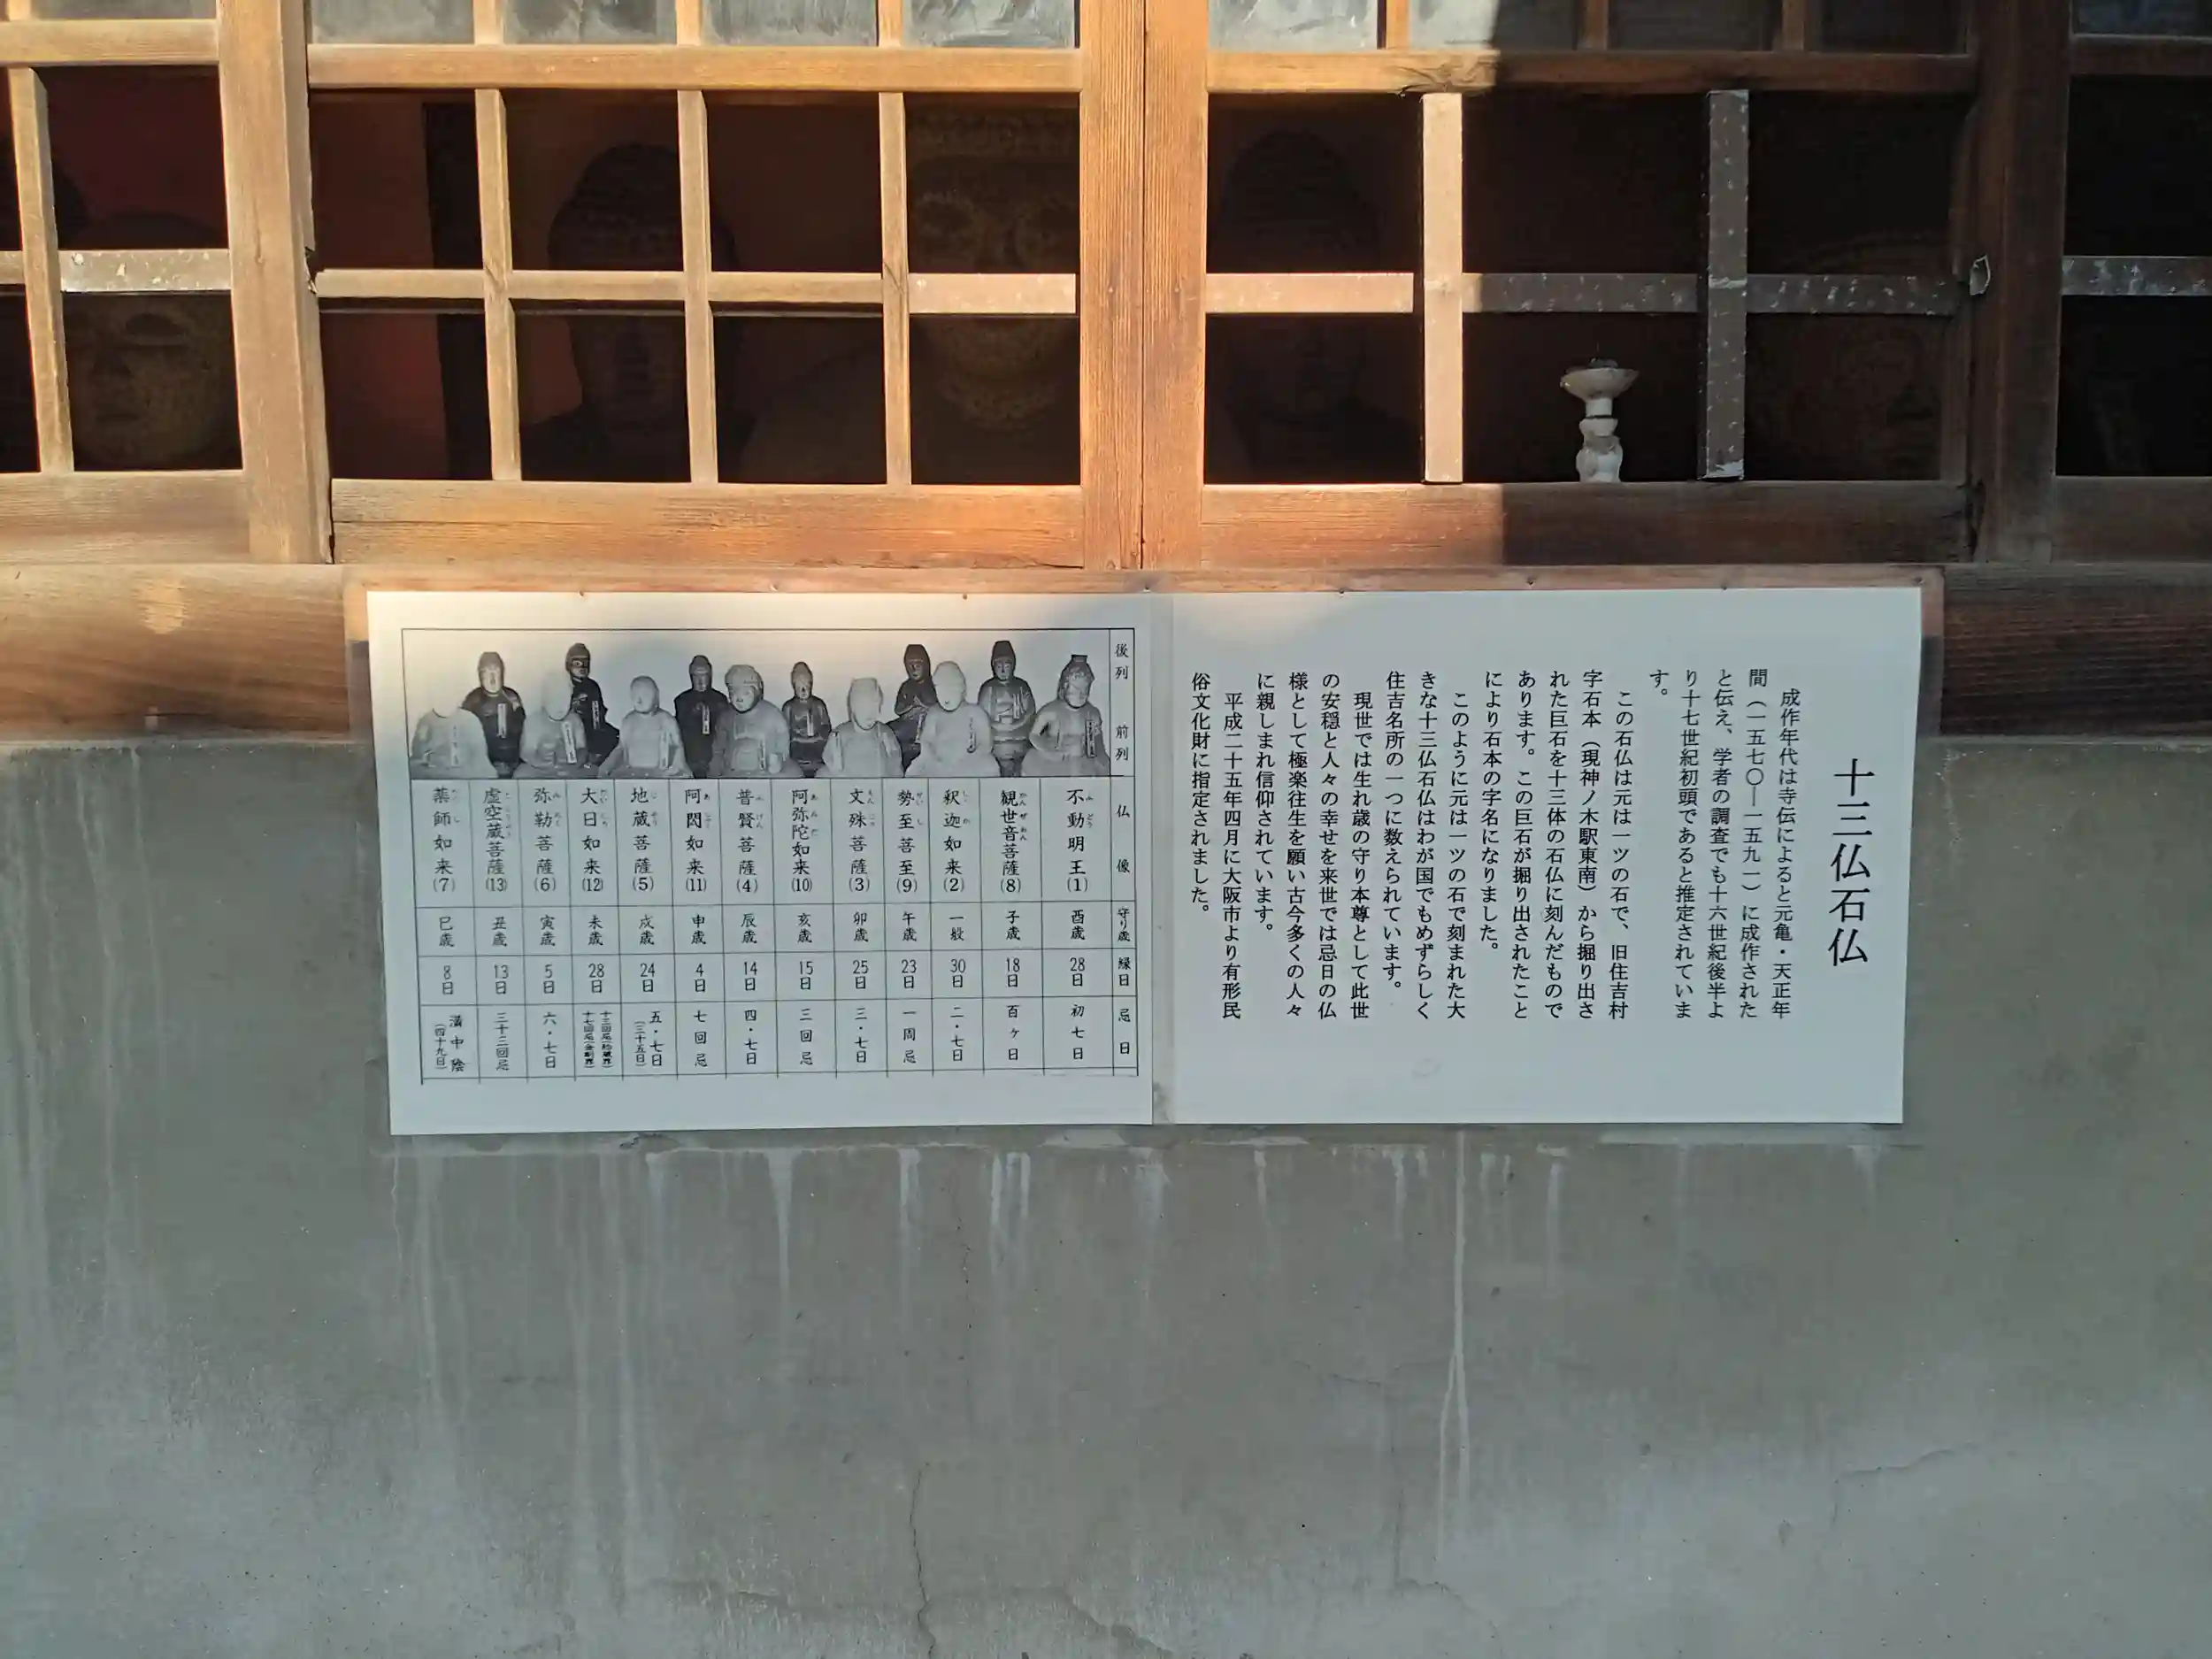 十三仏石仏
成作年代は寺伝によると元亀・天正年
間(一五七〇―一五九一)に成作された
と伝え、学者の調査でも十六世紀後半よ
り十七世紀初頭であると推定されていま
す。
この石仏は元は一ツの石で、旧住吉村
字石本(現神ノ木駅東南)から掘り出さ
れた巨石を十三体の石仏に刻んだもので
あります。この巨石が掘り出されたこと
により石本の字名になりました。
このように元は一ツの石で刻まれた大
きな十三仏石仏はわが国でもめずらしく
住吉名所の一つに数えられています。
現世では生れ歳の守り本尊として此世
の安穏と人々の幸せを来世では忌日の仏
様として極楽往生を願い古今多くの人々
に親しまれ信仰されています。
平成二十五年四月に大阪市より有形民
俗文化財に指定されました。
後列 前列 仏像 守り歳 縁日 忌日
不動明王(1) 酉歳 28日 初七日
観世音菩薩(8) 子歳 18日 百ヶ日
釈迦如来(2) 一般 30日 二・七日
勢至菩至(9) 午歳 23日 一周忌
文殊菩薩(3) 卯歳 25日 三・七日
阿弥陀如来(10) 亥歳 15日 三回忌
普賢菩薩(4) 辰歳 14日 四・七日
阿閦如来(11) 申歳 4日 七回忌
地蔵菩薩(5) 戌歳 24日 五・七日(三十五日)
大日如来(12) 未歳 28日 十三回忌(胎蔵界) 十七回忌(金剛界)
弥勒菩薩(6) 寅歳 5日 六・七日
虚空蔵菩薩(13) 丑歳 13日 三十三回忌
薬師如来(7) 巳歳 8日 満中陰(四十九日)